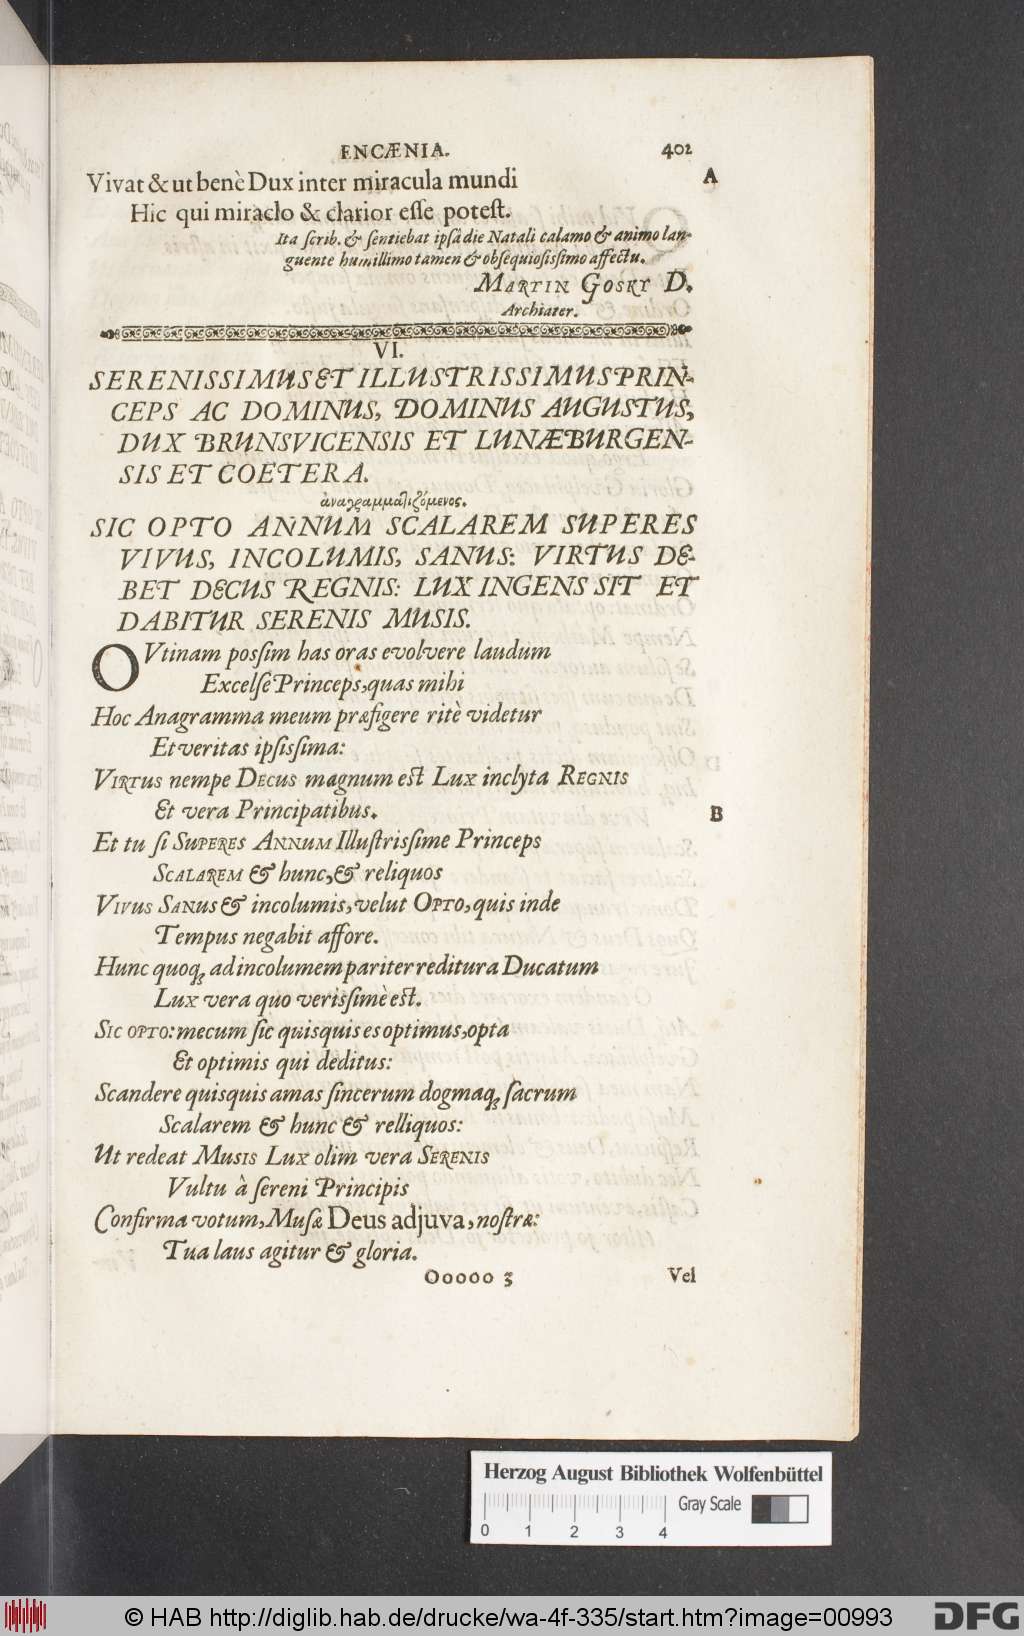 ENCÆNIA. 402
Vivat & ut benè Dux inter miracula mundi A
Hic qui miraclo & clarior esse potest.
Ita scrib. & sentiebat ipsâ die Natali calamo & animo lan-
guente humillimo tamen & obsequiosissimo affectu.
MARTIN GOSKY D.
Archiater.
VI.
SERENISSIMUS ET ILLUSTRISSIMUS PRIN-
CEPS AC DOMINUS, DOMINUS AUGUSTUS,
DUX BRUNSVICENSIS ET LUNÆBURGEN-
SIS ET COETERA.
ἀναγραμματιζόμενος.
SIC OPTO ANNUM SCALAREM SUPERES
VIVUS, INCOLUMIS, SANUS: VIRTUS DE-
BET DECUS REGNIS: LUX INGENS SIT ET
DABITUR SERENIS MUSIS.
O Vtinam possim has oras evolvere laudum
Excelse Princeps, quas mihi
Hoc Anagramma meum præfigere ritè videtur
Et veritas ipsissima:
VIRTUS nempe DECUS magnum est LUX inclyta REGNIS
Et vera Principatibus. B
Et tu si SUPERES ANNUM Illustrissime Princeps
SCALAREM & hunc, & reliquos
VIVUS SANUS & incolumis, velut OPTO, quis inde
Tempus negabit affore.
Hunc quoq; ad incolumem pariter reditura Ducatum
LUX vera quo verissimè est.
SIC OPTO: mecum sic quisquis es optimus, opta
Et optimis qui deditus:
Scandere quisquis amas sincerum dogmaq; sacrum
Scalarem & hunc & relliquos:
Ut redeat MUSIS LUX olim vera SERENIS
Vultu à sereni Principis
Confirma votum, Musæ Deus adjuva, nostræ:
Tua laus agitur & gloria.
Ooooo 3 Vel
Herzog August Bibliothek Wolfenbüttel
Gray Scale
0 1 2 3 4
© HAB http://diglib.hab.de/drucke/wa-4f-335/start.htm?image=00993
DFG